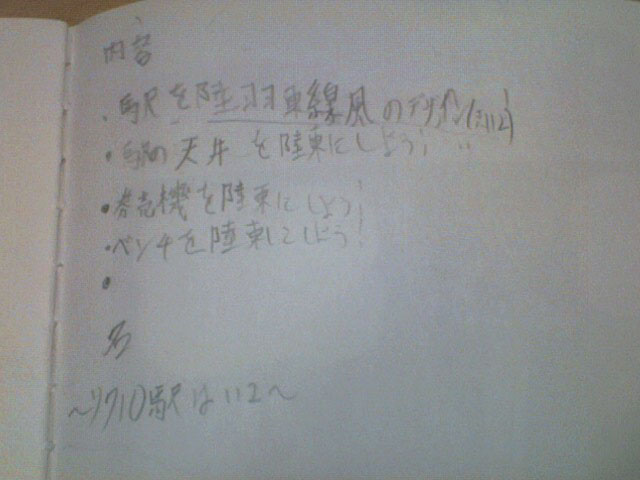 内容
・駅を陸羽東線風のデザインに
・駅の天井を陸東にしよう!
・券売機を陸東にしよう!
・ベンチを陸東にしよう!
・
名
駅は